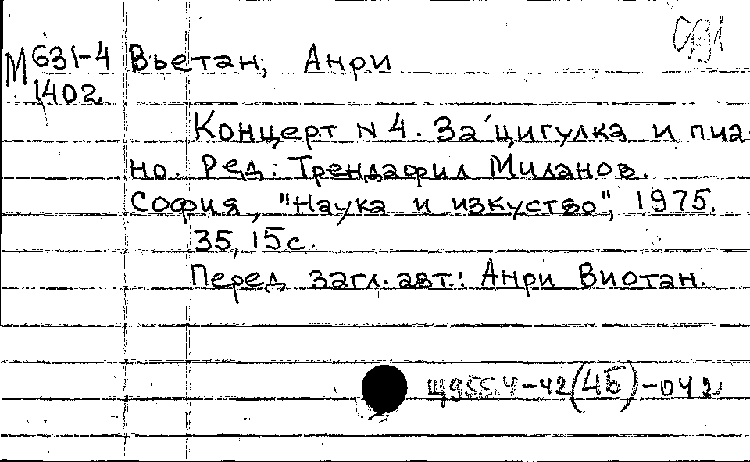 М 631-4 Вьетан, Анри
1402
Концерт N 4. За цигулка и пиа-
но. Ред.: Трендафил Миланов.
София, "Наука и изкуство", 1975.
35, 15 с.
Перед загл. авт.: Анри Виотан.
Щ955.4-42(4Б)-042